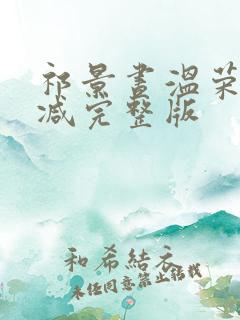 祁景晝溫荣
减完整版
和希結衣
未经同意禁止转载